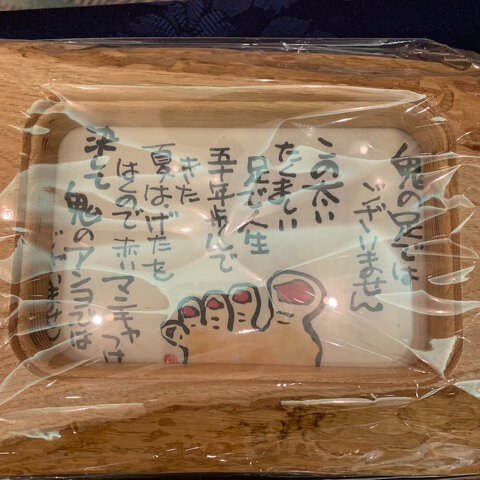 鬼の足では
ございません
この太い
たくましい
足で人生
五十年歩んで
きた
夏はげたを
はくので赤いマニキャつけ
決して鬼のアンヨでは
ございません